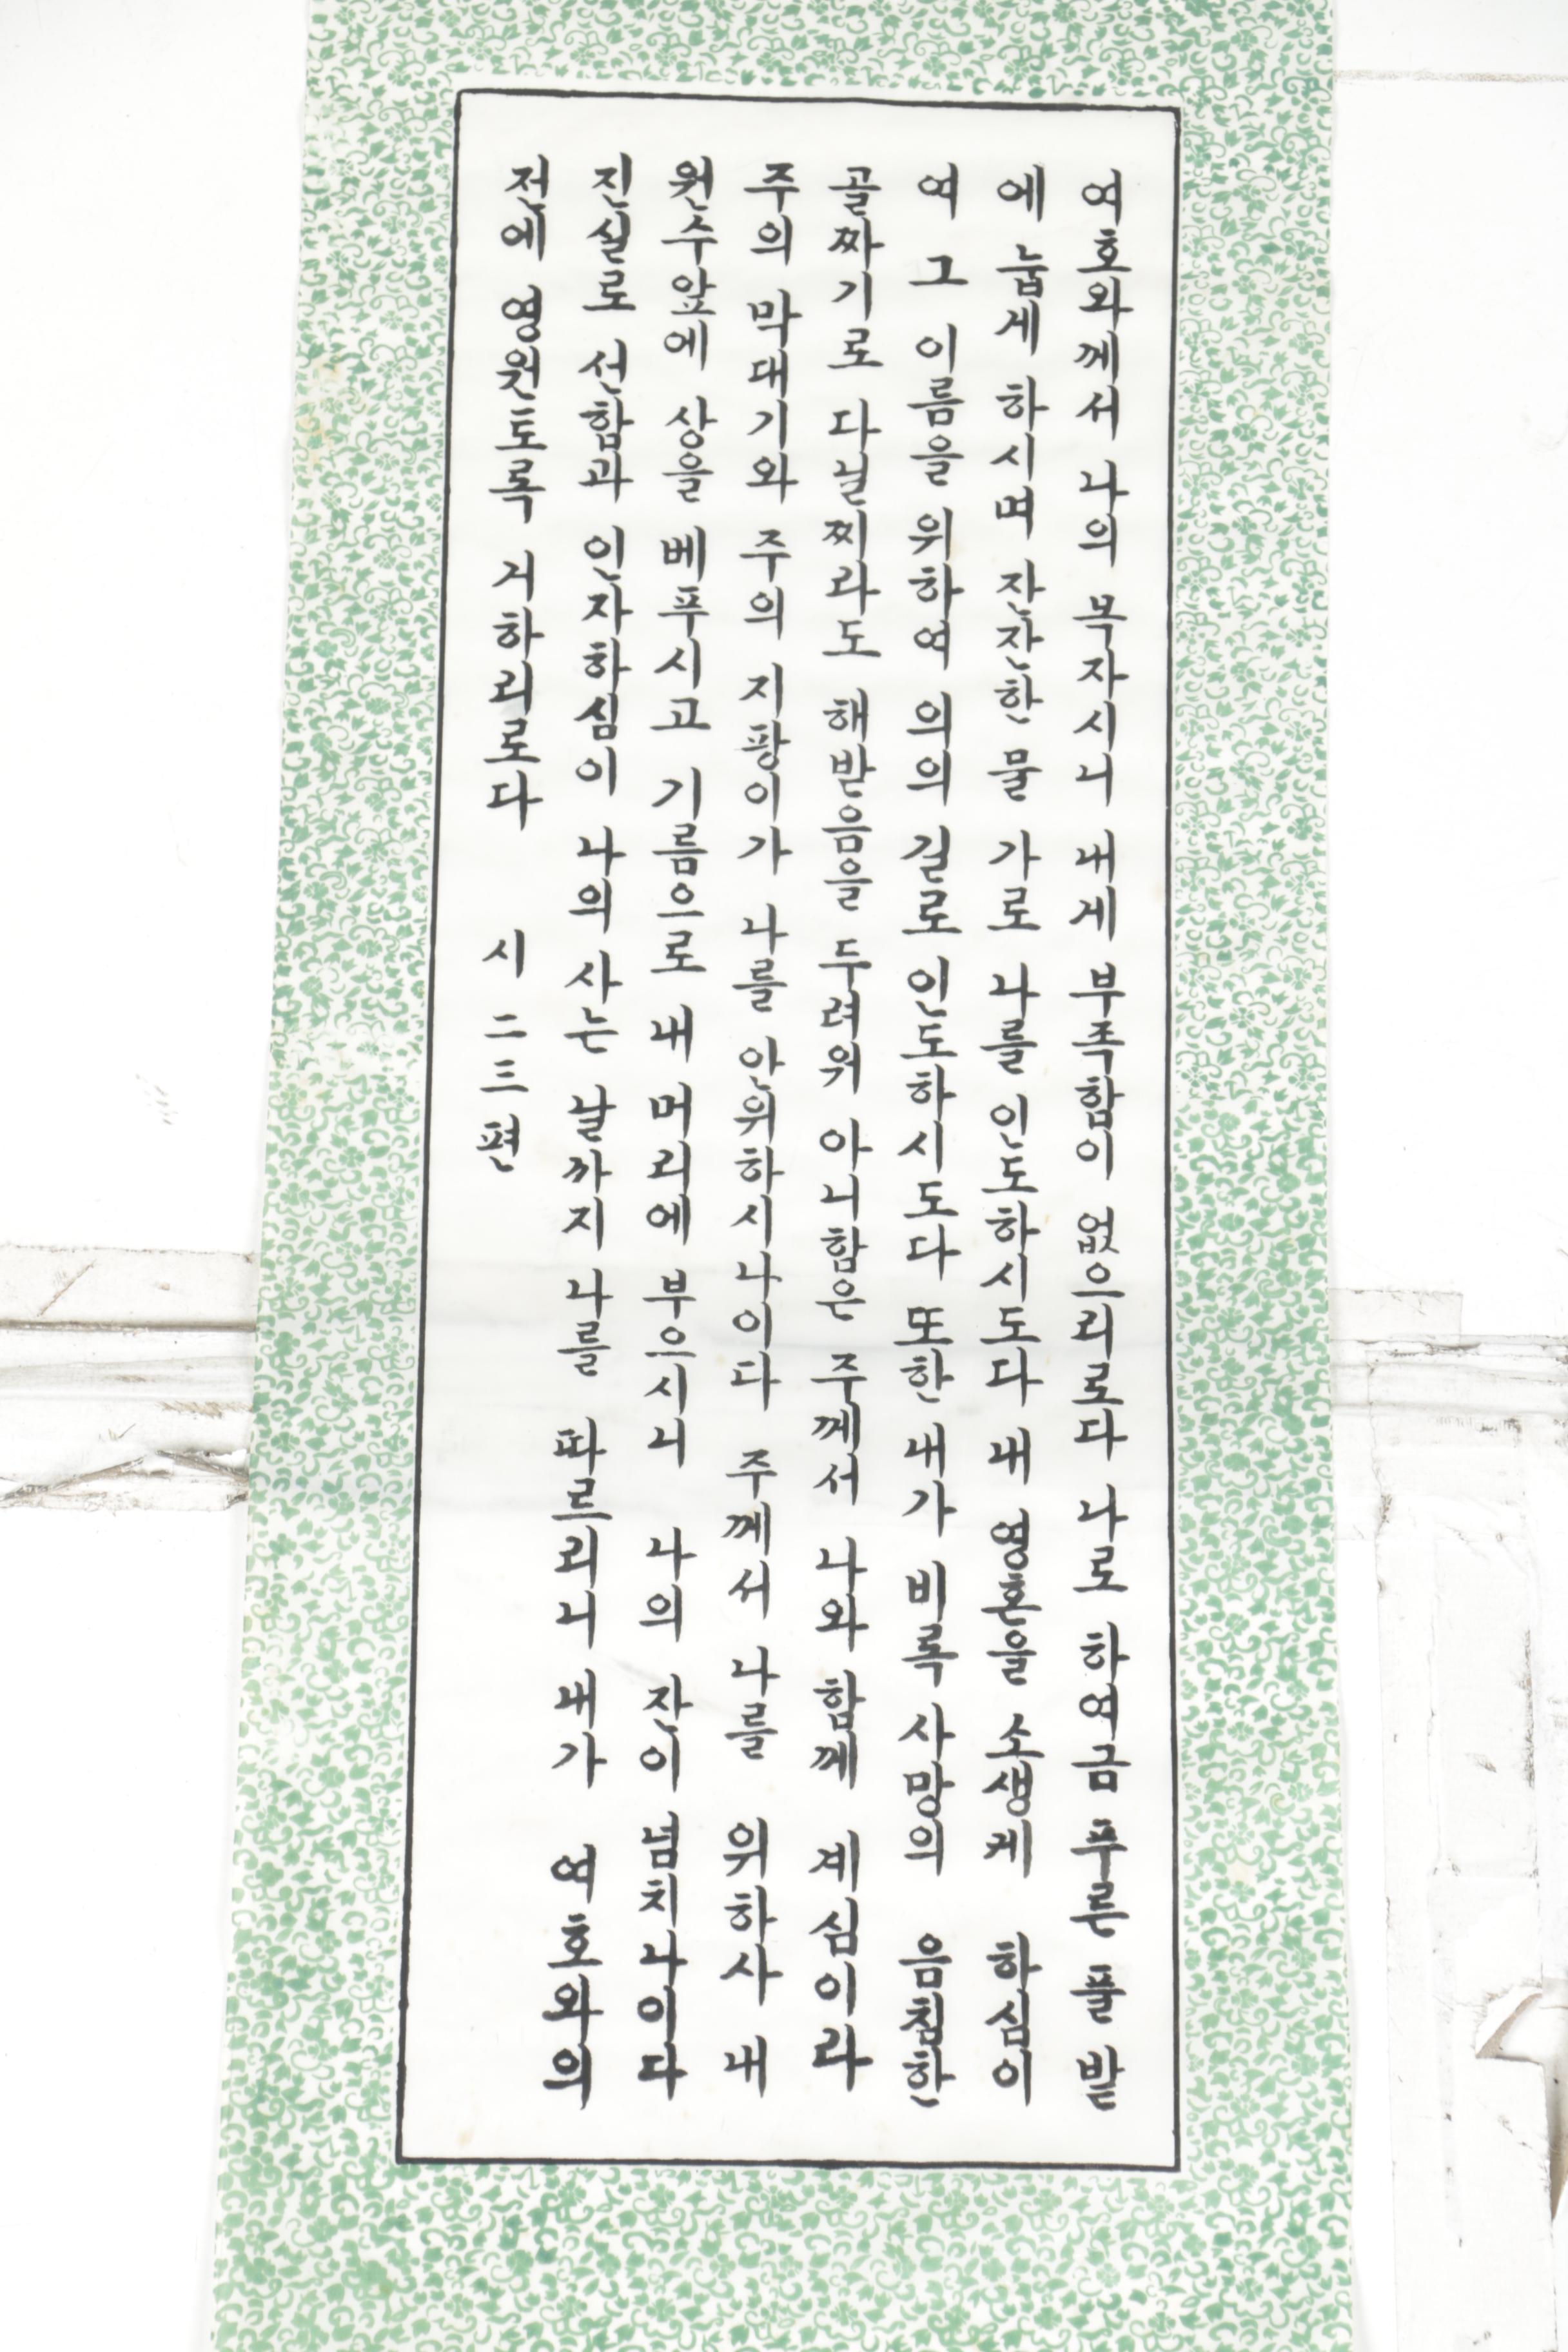 여호와께서 나의 목자시니 내게 부족함이 없으리로다 나로 하여금 푸른 풀 밭
에 눕게 하시며 잔잔한 물 가로 나를 인도하시도다 내 영혼을 소생게 하심이
여 그 이름을 위하여 의의 길로 인도하시도다 또한 내가 비록 사망의 음침한
골짜기로 다닐찌라도 해받음을 두려워 아니함은 주께서 나와 함께 계심이라
주의 막대기와 주의 지팡이가 나를 안위하시나이다 주께서 나를 위하사 내
원수앞에 상을 베푸시고 기름으로 내 머리에 부으시니 나의 잔이 넘치나이다
진실로 선함과 인자하심이 나의 사는 날까지 나를 따르리니 내가 여호와의
전에 영원토록 거하리로다 시 二三편